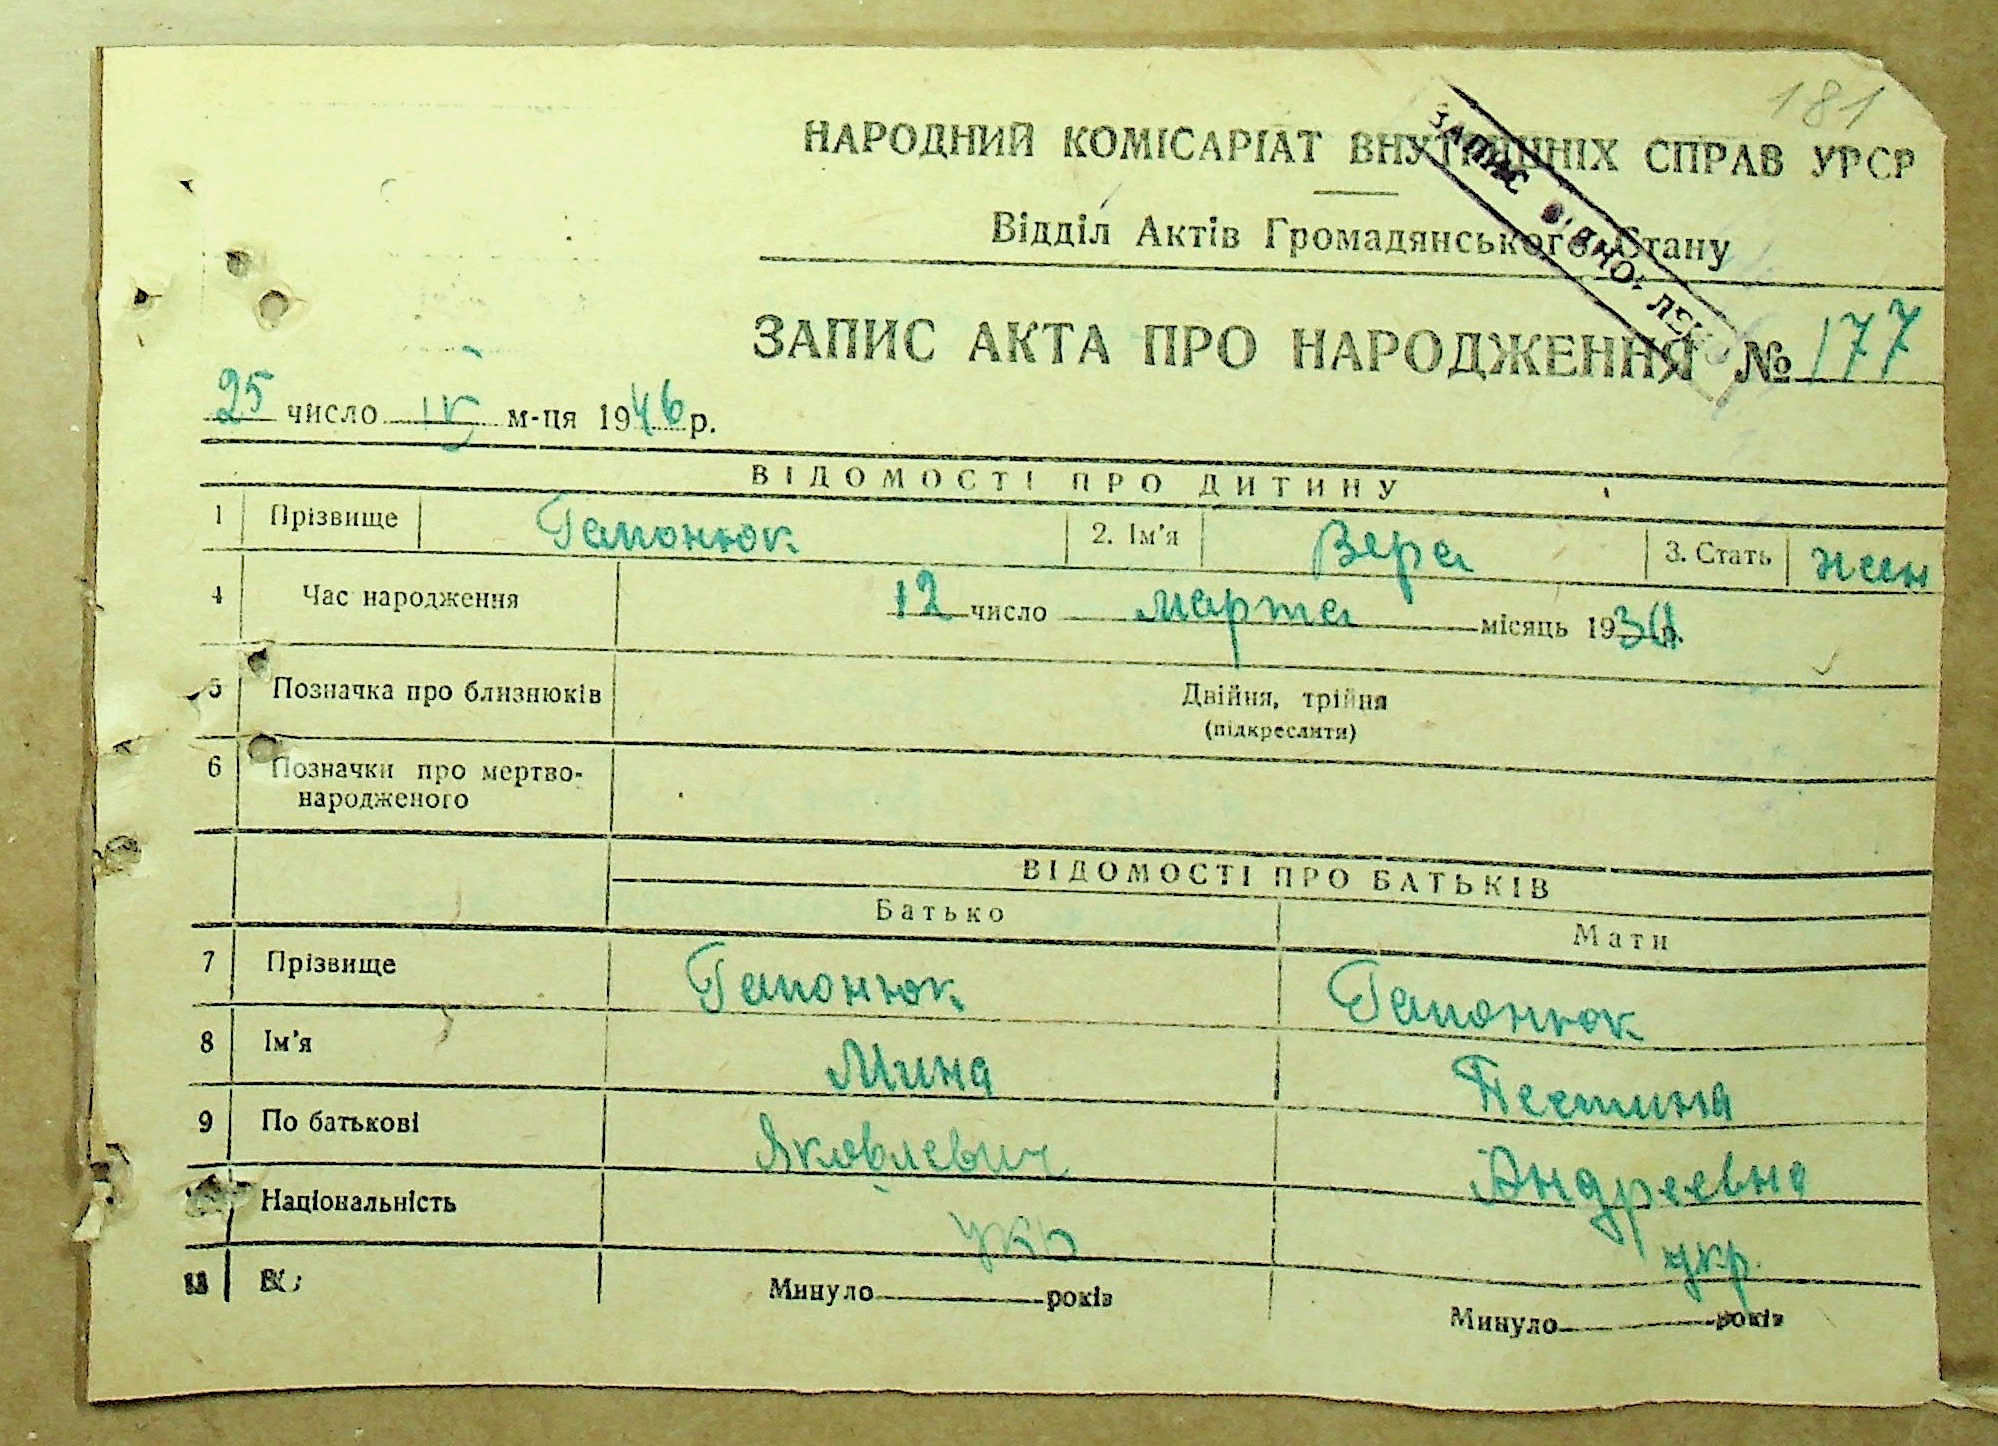 181
НАРОДНИЙ КОМІСАРІАТ ВНУТРІШНІХ СПРАВ УРСР
Відділ Актів Громадянського Стану
ЗАПИС ВІДНОВЛЕНО
ЗАПИС АКТА ПРО НАРОДЖЕННЯ № 177
25 число IV м-ця 1946 р.
ВІДОМОСТІ ПРО ДИТИНУ
1 Прізвище Гапонюк 2. Ім'я Вера 3. Стать жен
4 Час народження 12 число марта місяць 193 р.
5 Позначка про близнюків Двійня, трійня
(підкреслити)
6 Позначки про мертво-
народженого
ВІДОМОСТІ ПРО БАТЬКІВ
Батько Мати
7 Прізвище Гапонюк Гапонюк
8 Ім'я Мина
9 По батькові Яковлевич Андреевна
Національність укр укр.
11 Минуло років Минуло років